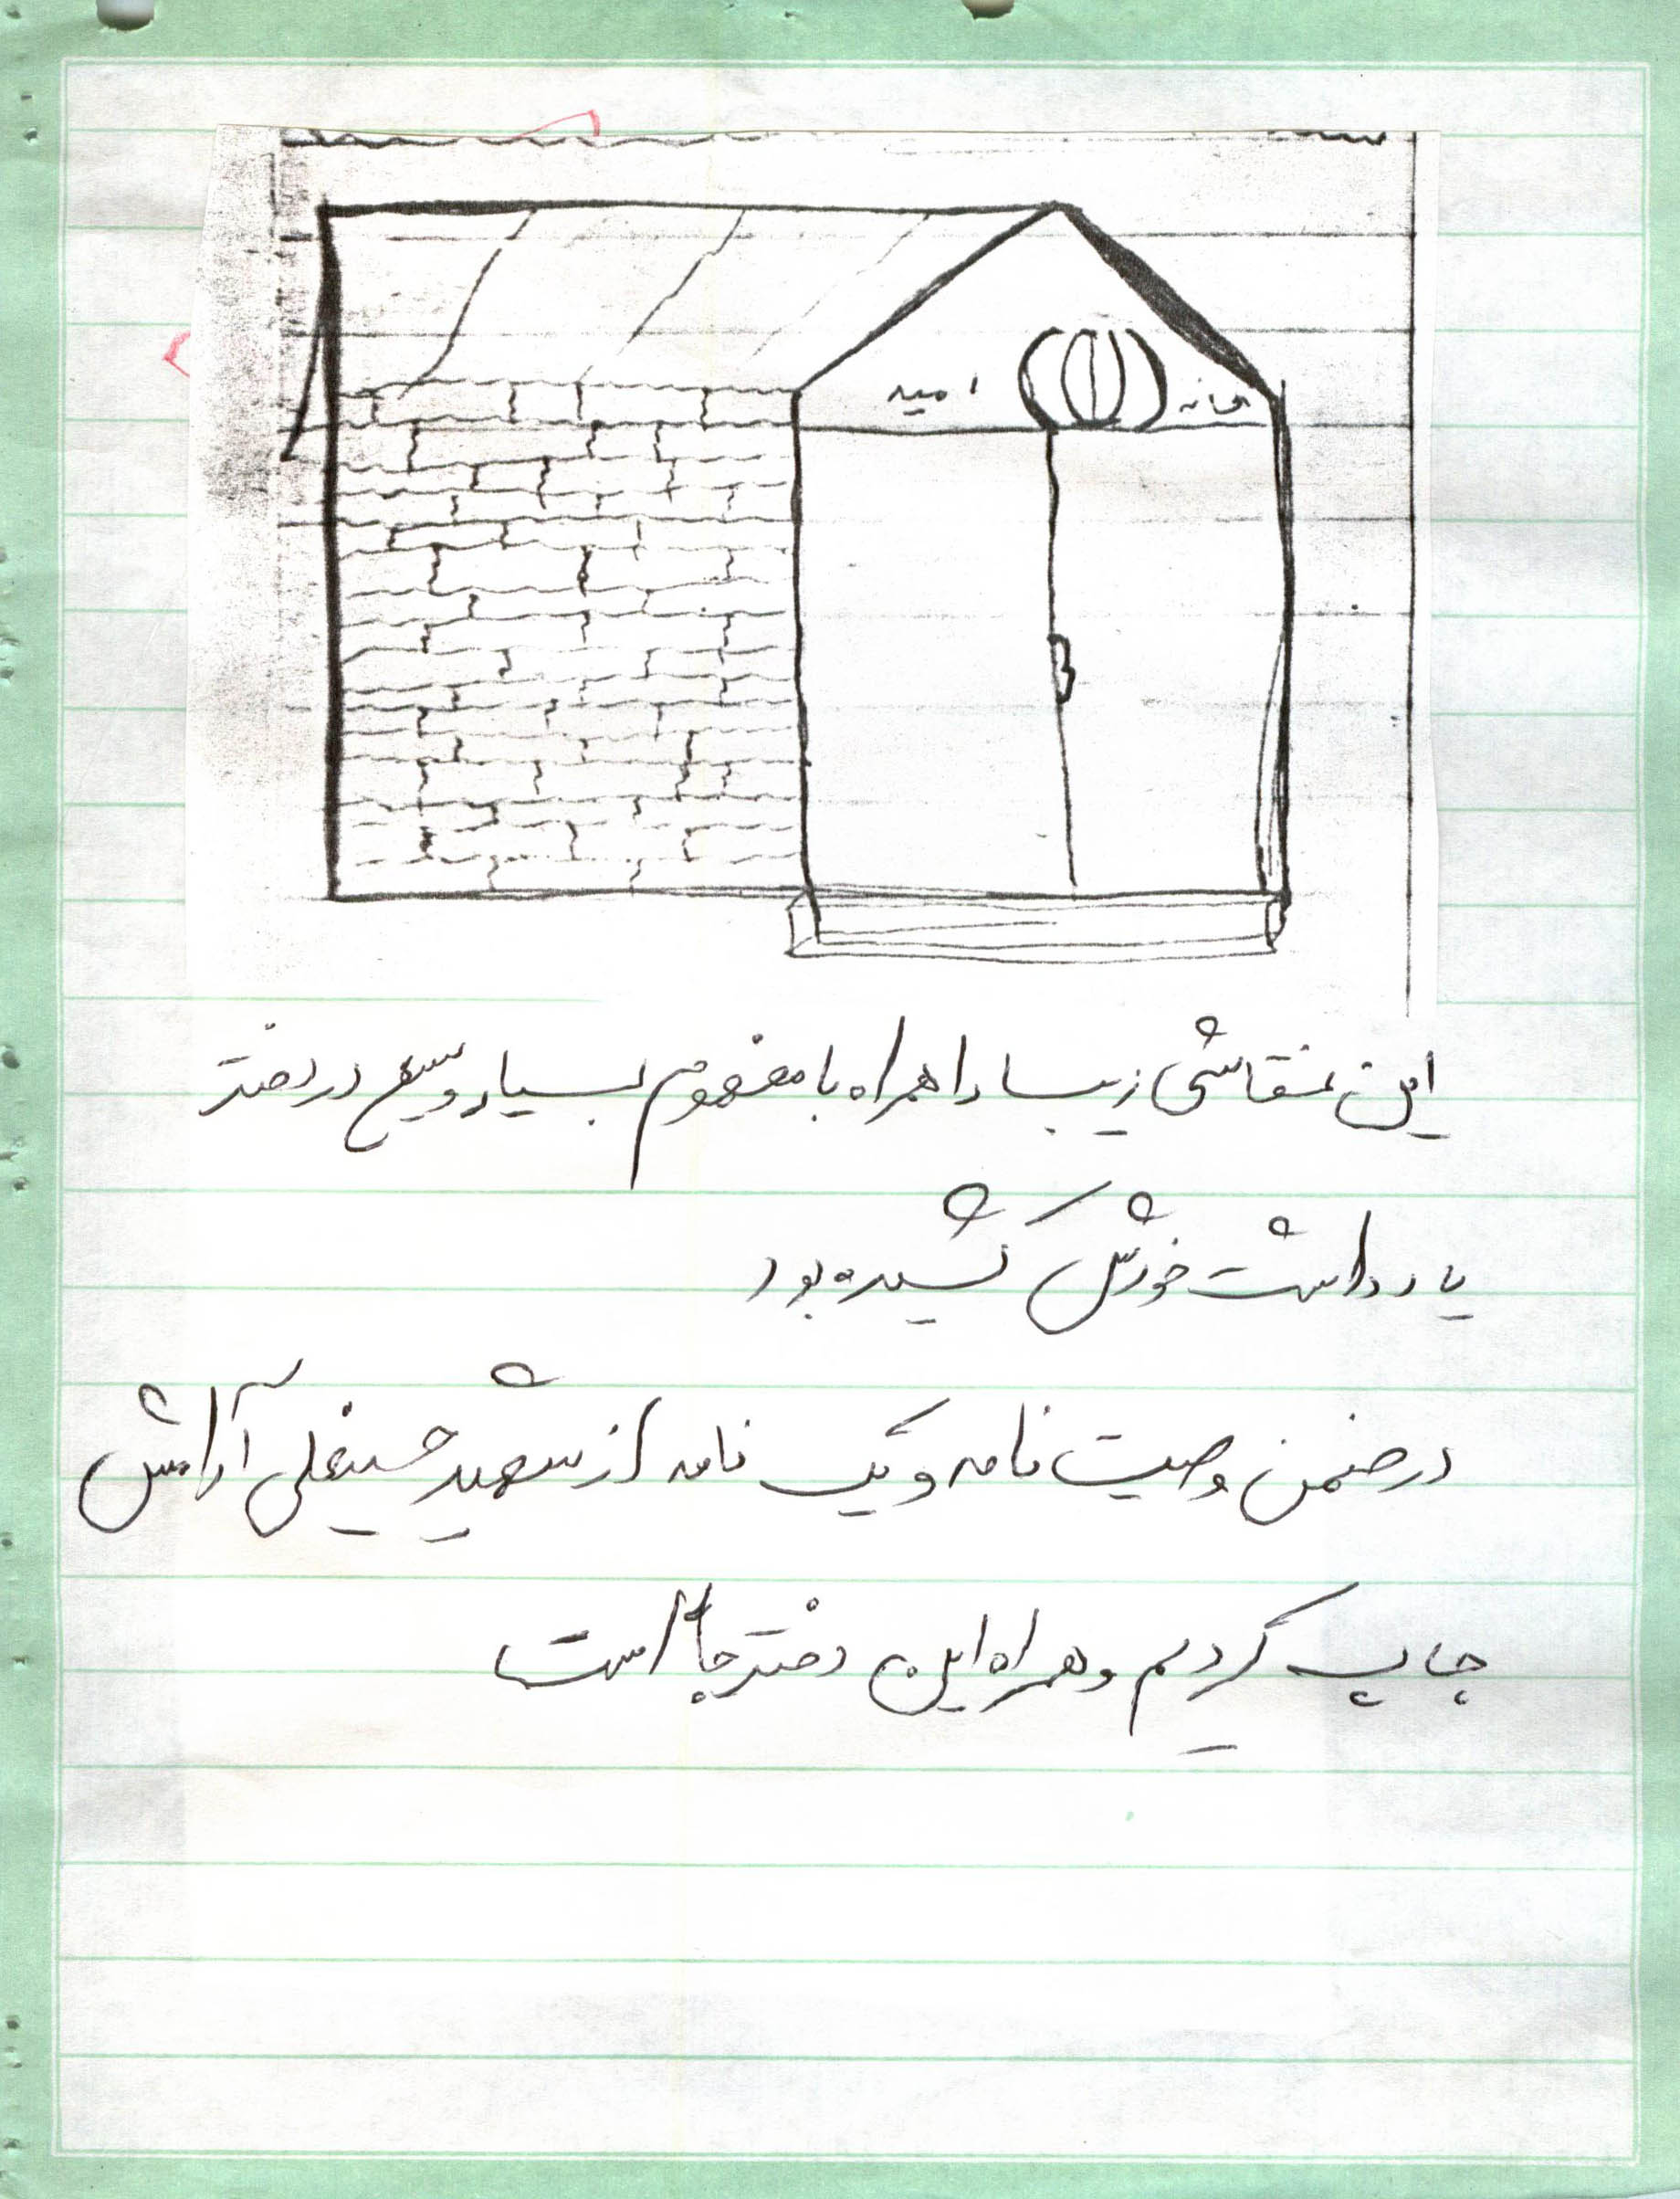 خانه امید
این نقاشی زیبا را همراه با مفهوم بسیار وسیع در دفتر
یادداشت خودش کشیده بود
در ضمن وصیت نامه و یک نامه از شهید حسینعلی آرامش
چاپ کردیم و همراه این دفترچه است